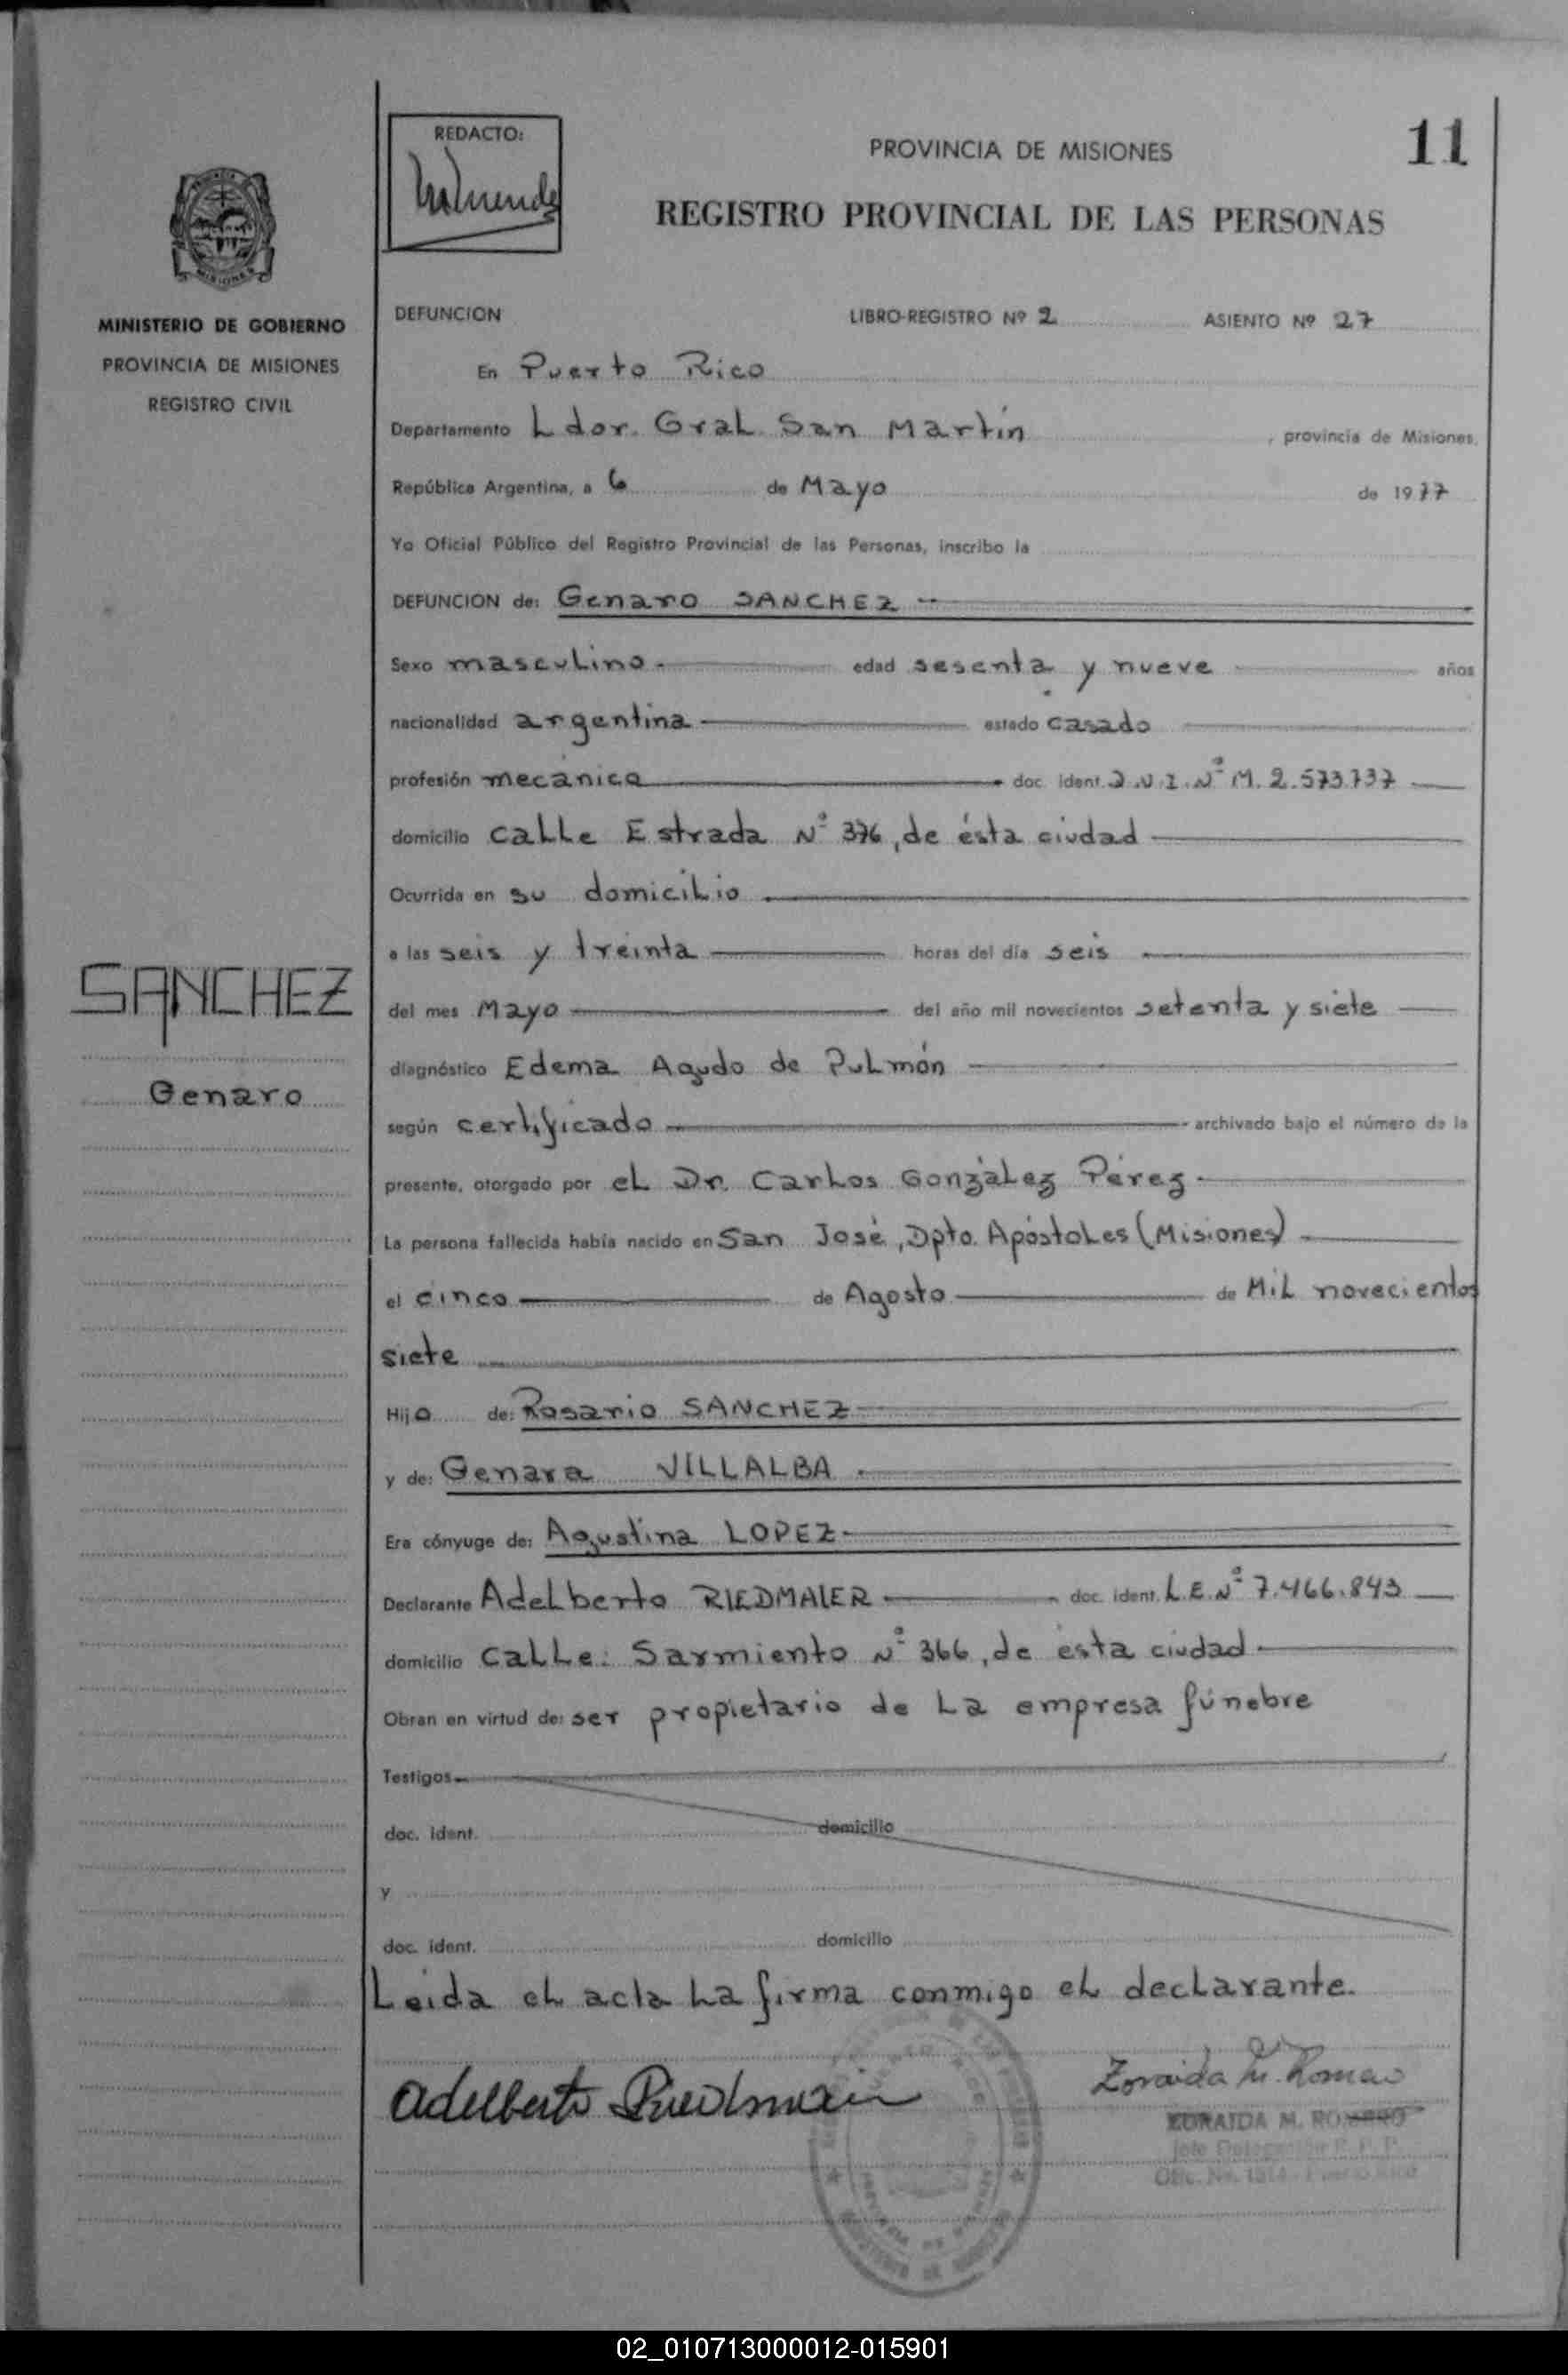 REDACTO:
PROVINCIA DE MISIONES
11
REGISTRO PROVINCIAL DE LAS PERSONAS
MISIONES
MINISTERIO DE GOBIERNO
PROVINCIA DE MISIONES
REGISTRO CIVIL
DEFUNCION LIBRO-REGISTRO Nº 2 ASIENTO Nº 27
En Puerto Rico
Departamento Ldor. Gral San Martín , provincia de Misiones,
República Argentina, a 6 de Mayo de 1977
Yo Oficial Público del Registro Provincial de las Personas, inscribo la
DEFUNCION de: Genaro SANCHEZ
Sexo masculino edad sesenta y nueve años
nacionalidad argentina estado casado
profesión mecánico doc. ident. D.N.I. Nº M. 2.573.737
domicilio calle Estrada Nº 376, de ésta ciudad
Ocurrida en su domicilio
a las seis y treinta horas del día seis
del mes Mayo del año mil novecientos setenta y siete
diagnóstico Edema Agudo de Pulmón
según certificado archivado bajo el número de la
presente, otorgado por el Dr. Carlos González Pérez
La persona fallecida había nacido en San José, Dpto. Apóstoles (Misiones)
el cinco de Agosto de Mil novecientos
siete
Hijo de: Rosario SANCHEZ
y de: Genara VILLALBA
Era cónyuge de: Agustina LOPEZ
Declarante Adelberto RIEDMAIER doc. ident. L.E. Nº 7.466.843
domicilio calle: Sarmiento Nº 366, de ésta ciudad
Obran en virtud de: ser propietario de la empresa fúnebre
Testigos
doc. ident. domicilio
y
doc. ident. domicilio
Leída el acta la firma conmigo el declarante.
SANCHEZ
Genaro
Adelberto Riedmaier
Zoraida M. Romero
ZORAIDA M. ROMERO
Jefe Delegación R. P. P.
Puerto Rico
02_010713000012-015901